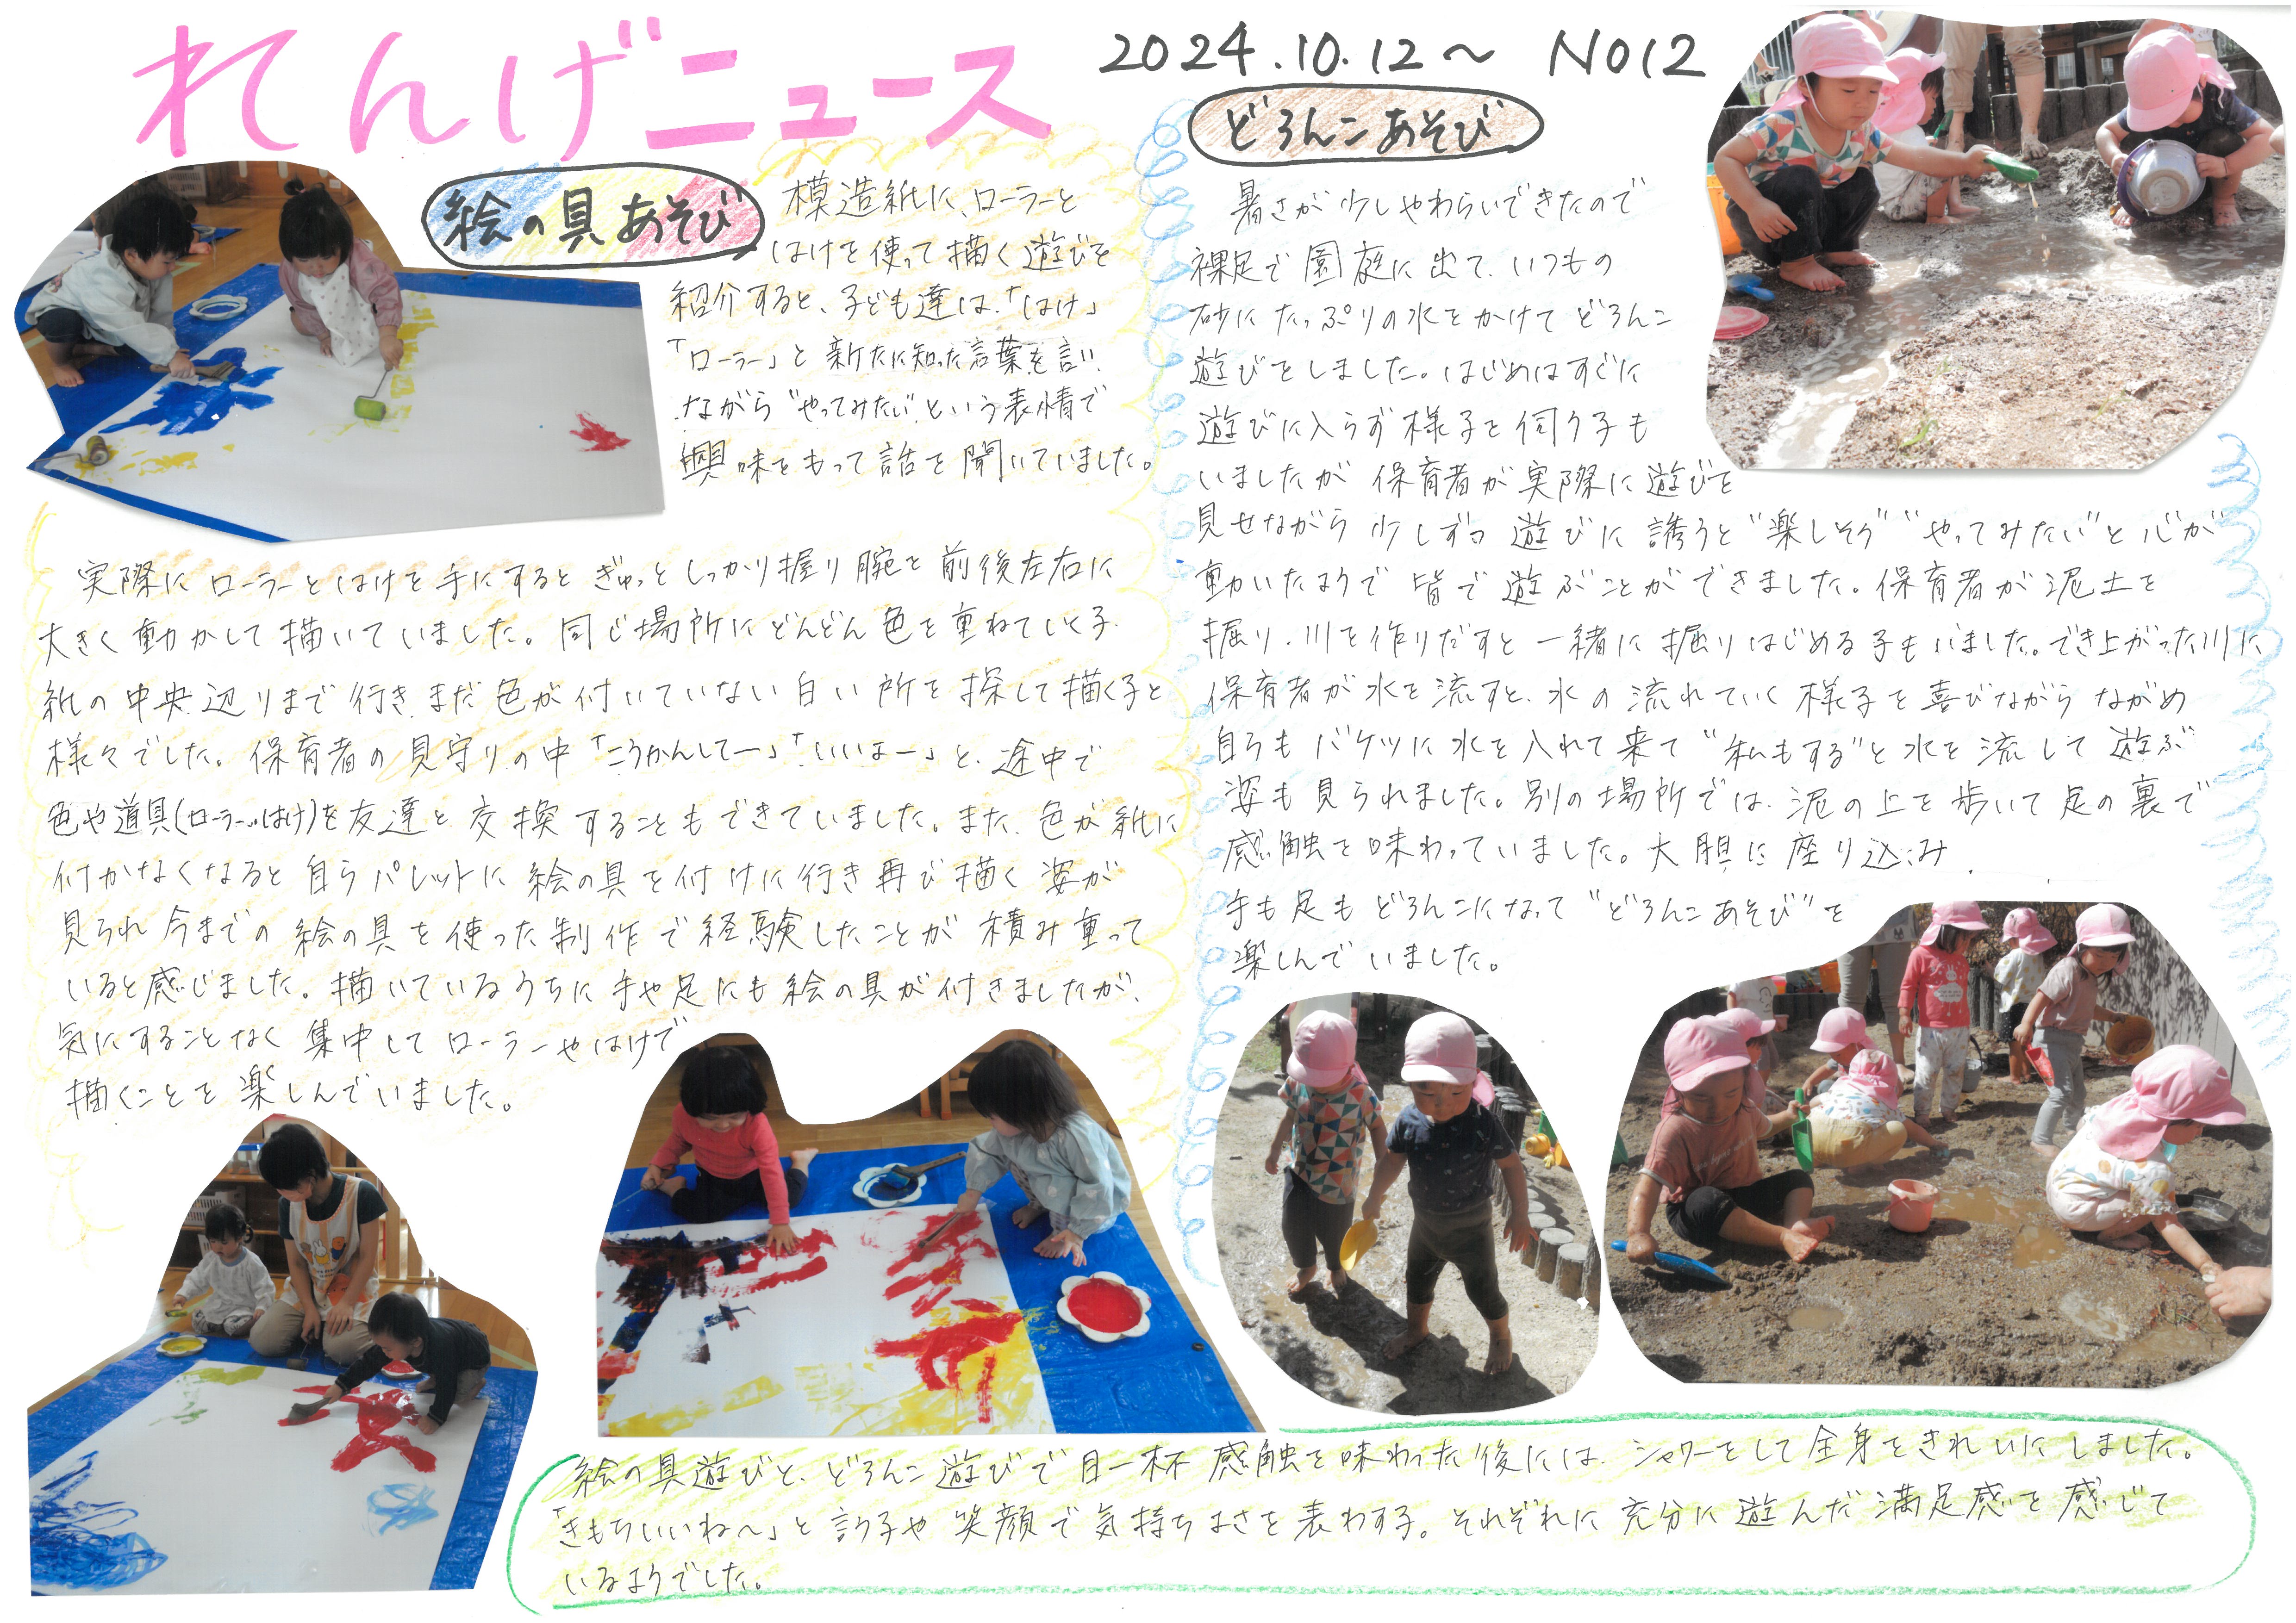 れんげニュース
2024.10.12〜 No12
絵の具あそび
模造紙に、ローラーと
はけを使って描く遊びを
紹介すると、子ども達は、「はけ」
「ローラー」と新たに知った言葉を言い
ながら"やってみたい"という表情で
興味をもって話を聞いていました。
実際にローラーとはけを手にするとぎゅっとしっかり握り腕を前後左右に
大きく動かして描いていました。同じ場所にどんどん色を重ねていく子、
紙の中央辺りまで行きまだ色が付いていない白い所を探して描く子と
様々でした。保育者の見守りの中「こうかんしてー」「いいよー」と、途中で
色や道具(ローラー、はけ)を友達と交換することもできていました。また、色が紙に
付かなくなると自らパレットに絵の具を付けに行き再び描く姿が
見られ今までの絵の具を使った制作で経験したことが積み重って
いると感じました。描いているうちに手や足にも絵の具が付きましたが、
気にすることなく集中してローラーやはけで
描くことを楽しんでいました。
どろんこあそび
暑さが少しやわらいできたので
裸足で園庭に出て、いつもの
砂にたっぷりの水をかけてどろんこ
遊びをしました。はじめはすぐに
遊びに入らず様子を伺う子も
いましたが保育者が実際に遊びを
見せながら少しずつ遊びに誘うと"楽しそう""やってみたい"と心が
動いたようで皆で遊ぶことができました。保育者が泥土を
掘り、川を作りだすと一緒に掘りはじめる子もいました。でき上がった川に
保育者が水を流すと、水の流れていく様子を喜びながらながめ
自らもバケツに水を入れて来て"私もする"と水を流して遊ぶ
姿も見られました。別の場所では、泥の上を歩いて足の裏で
感触を味わっていました。大胆に座り込み
手も足もどろんこになって"どろんこあそび"を
楽しんでいました。
絵の具遊びと、どろんこ遊びで目一杯感触を味わった後には、シャワーをして全身をきれいにしました。
「きもちいいね〜」と言う子や笑顔で気持ちよさを表わす子。それぞれに充分に遊んだ満足感を感じて
いるようでした。